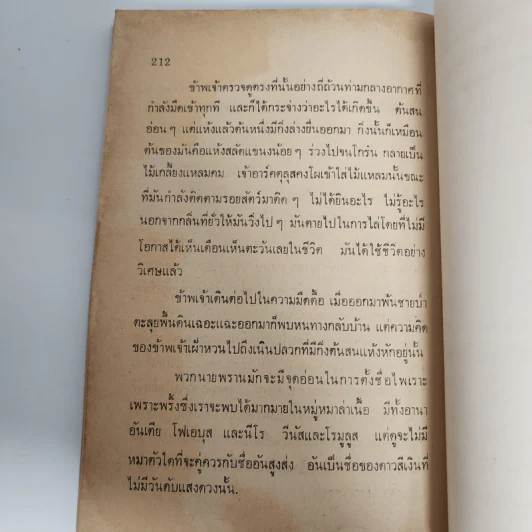 212
ข้าพเจ้าตรวจดูตรงที่นั้นอย่างถี่ถ้วนท่ามกลางอากาศที่
กำลังมืดเข้าทุกที และก็ได้กระจ่างว่าอะไรได้เกิดขึ้น ต้นสน
อ่อนๆ แต่แห้งแล้วต้นหนึ่งมีกิ่งล่างยื่นออกมา กิ่งนั้นก็เหมือน
ต้นของมันคือแห้งสลัดแขนงน้อยๆ ร่วงไปจนโกร๋น กลายเป็น
ไม้เกลี้ยงแหลมคม เจ้าอาร์คตุลุสคงโผเข้าใส่ไม้แหลมนั้นขณะ
ที่มันกำลังติดตามรอยสัตว์มาติดๆ ไม่ได้ยินอะไร ไม่รู้อะไร
นอกจากกลิ่นที่ยั่วให้มันวิ่งไปๆ มันตายไปในการไล่โดยที่ไม่มี
โอกาสได้เห็นเดือนเห็นตะวันเลยในชีวิต มันได้ใช้ชีวิตอย่าง
วิเศษแล้ว
ข้าพเจ้าเดินต่อไปในความมืดตื้อ เมื่อออกมาพ้นชายป่า
ตะลุยพื้นดินเฉอะแฉะออกมาก็พบหนทางกลับบ้าน แต่ความคิด
ของข้าพเจ้าเผ้าหวนไปถึงเนินปลวกที่มีกิ่งต้นสนแห้งหักอยู่นั้น
พวกนายพรานมักจะมีจุดอ่อนในการตั้งชื่อไพเราะ
เพราะพริ้งซึ่งเราจะพบได้มากมายในหมู่หมาล่าเนื้อ มีทั้งอานา
อันเตีย โฟเอบุส และนีโร วีนัสและโรมูลูส แต่ดูจะไม่มี
หมาตัวใดที่จะคู่ควรกับชื่ออันสูงส่ง อันเป็นชื่อของดาวสีเงินที่
ไม่มีวันดับแสงดวงนั้น.